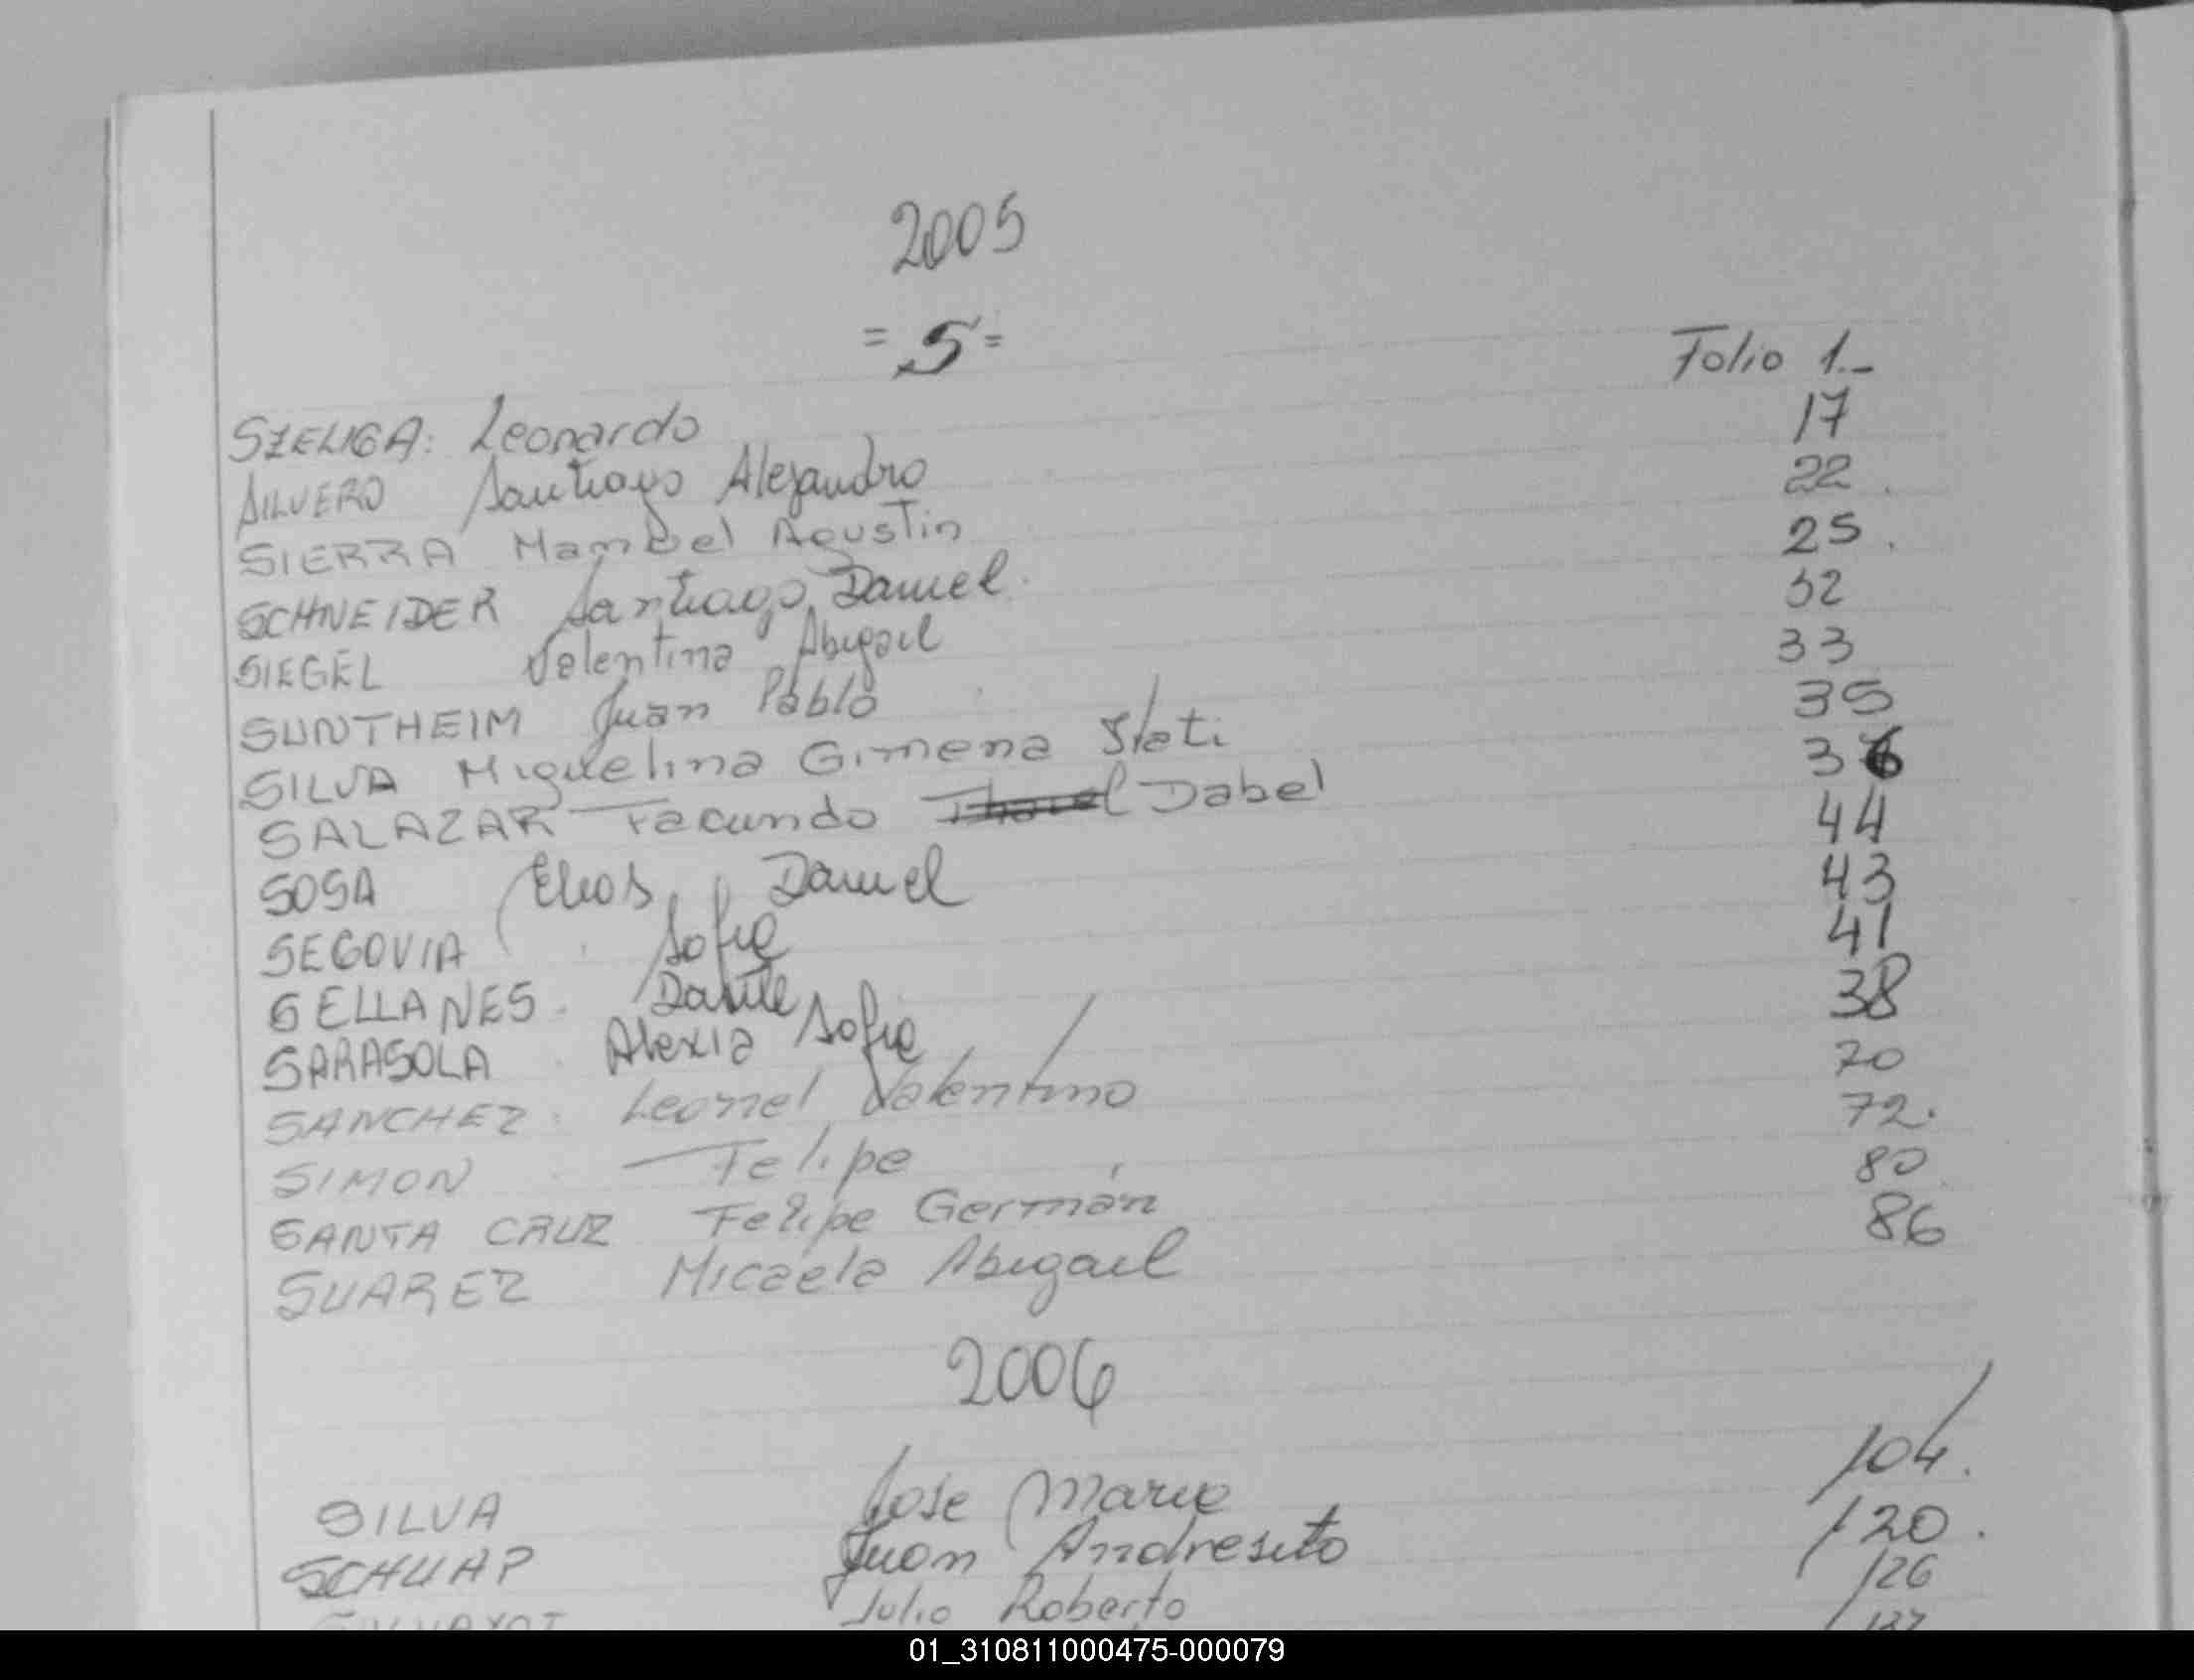 2005
= S =
SZELIGA: Leonardo Folio 1.-
SILVERO Santiago Alejandro 17
SIERRA Agustin 22.
SCHNEIDER Santiago Daniel. 25.
SIEGEL Valentina Abigail 32
SUNTHEIM Juan Pablo 33
SILVA Miguelina Gimena Itati 35
SALAZAR Facundo Dabel 36
SOSA Elias Daniel 44
SEGOVIA Sofia 43
SELLANES Dante 41
SARASOLA Alexia Sofia 38
SANCHEZ Leonel Valentino 70
SIMON Felipe 72.
SANTA CRUZ Felipe Germán 80
SUAREZ Micaela Abigail 86
2006
SILVA Jose Mario 104.
SCHUAP Juan Andresito 120.
Julio Roberto 126